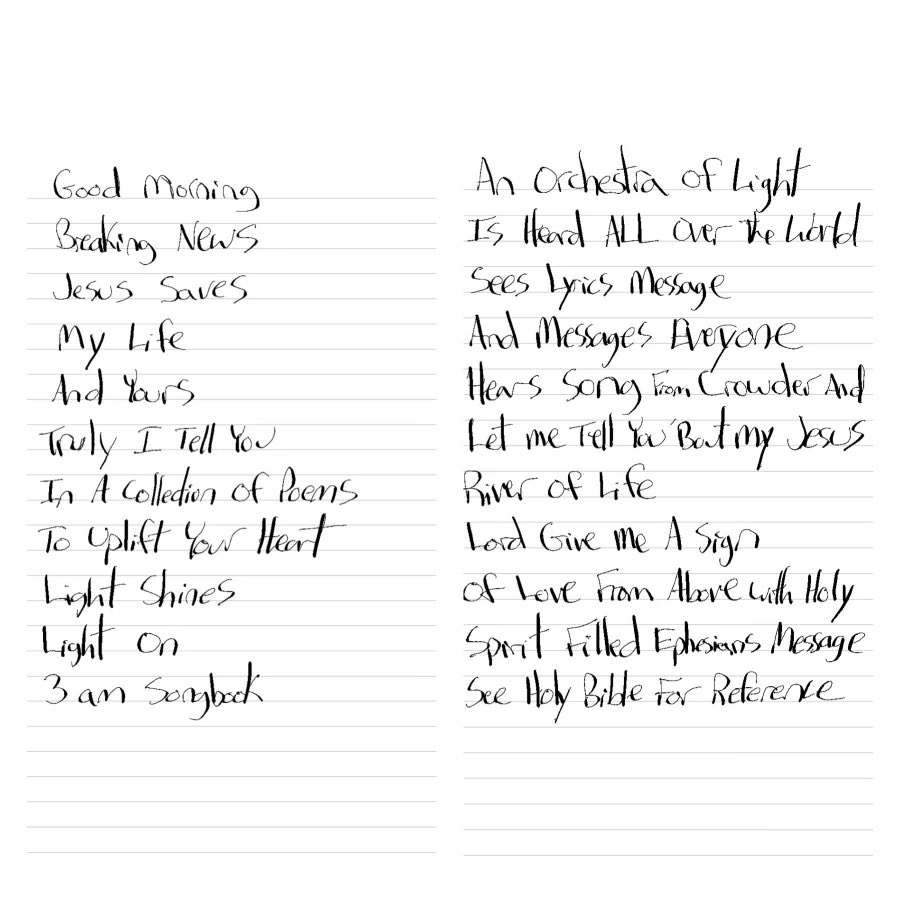 Good Morning
Breaking News
Jesus Saves
My Life
And Yours
Truly I Tell You
In A Collection of Poems
To Uplift Your Heart
Light Shines
Light On
3 am Songbook
An Orchestra of Light
Is Heard ALL Over The World
Sees Lyrics Message
And Messages Everyone
Hears Song From Crowder And
Let me Tell You 'Bout my Jesus
River of Life
Lord Give me A Sign
Of Love From Above with Holy
Spirit Filled Ephesians Message
See Holy Bible For Reference